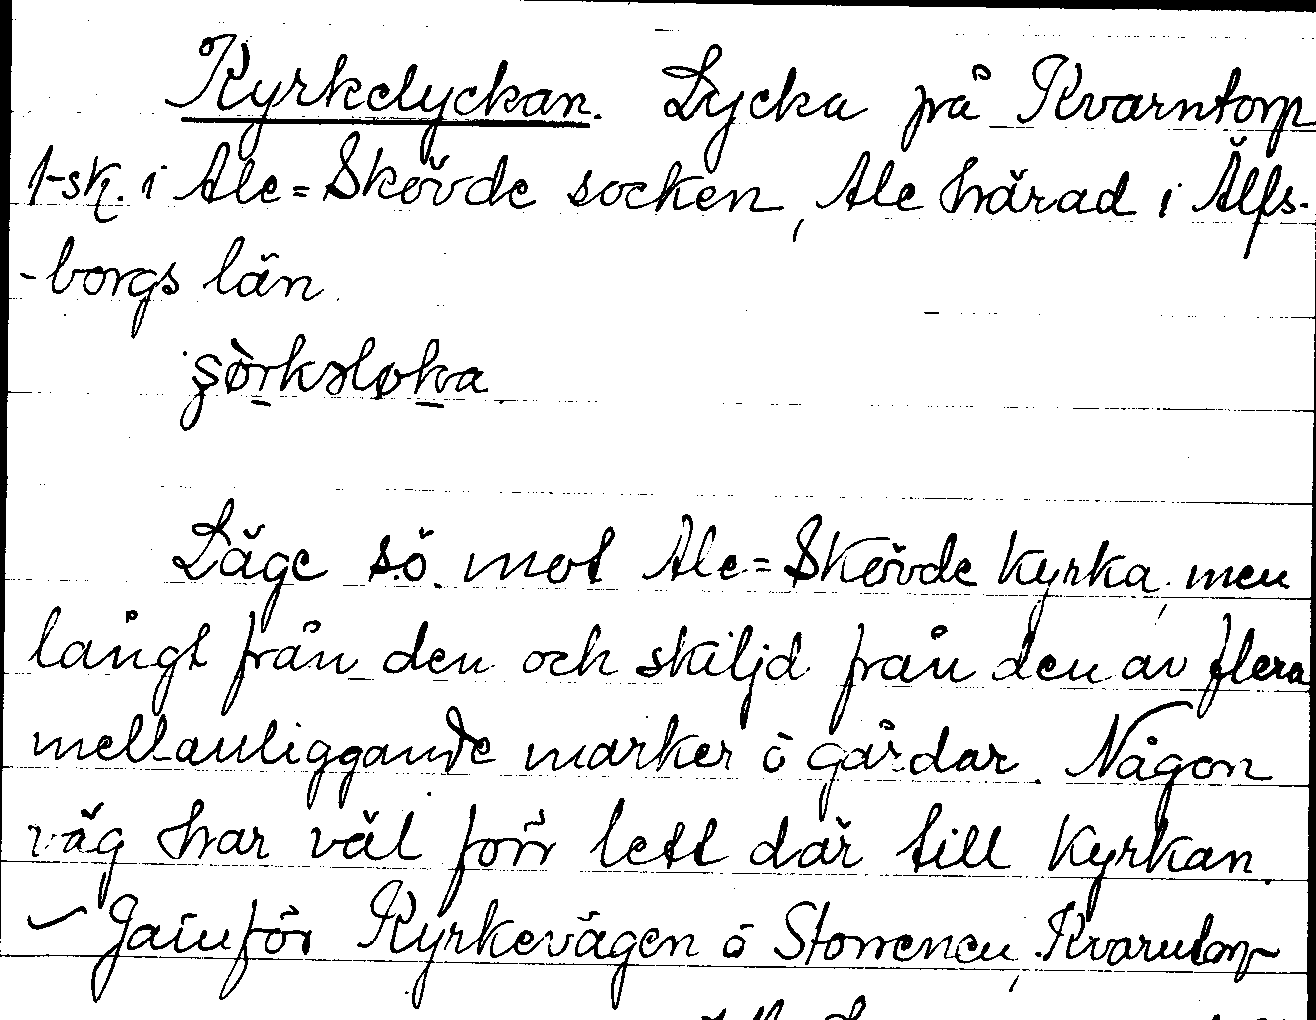 Kyrkelyckan. Lycka på Kvarntorp
1-sk. i Ale=Skövde socken, Ale härad i Älfs-
-borgs län
Läge s.ö. mot Ale=Skövde kyrka, men
långt från den och skiljd från den av flera
mellanliggande marker o gårdar. Någon
väg har väl förr lett där till kyrkan.
- Jämför Kyrkevägen o Storrenen, Kvarntorp